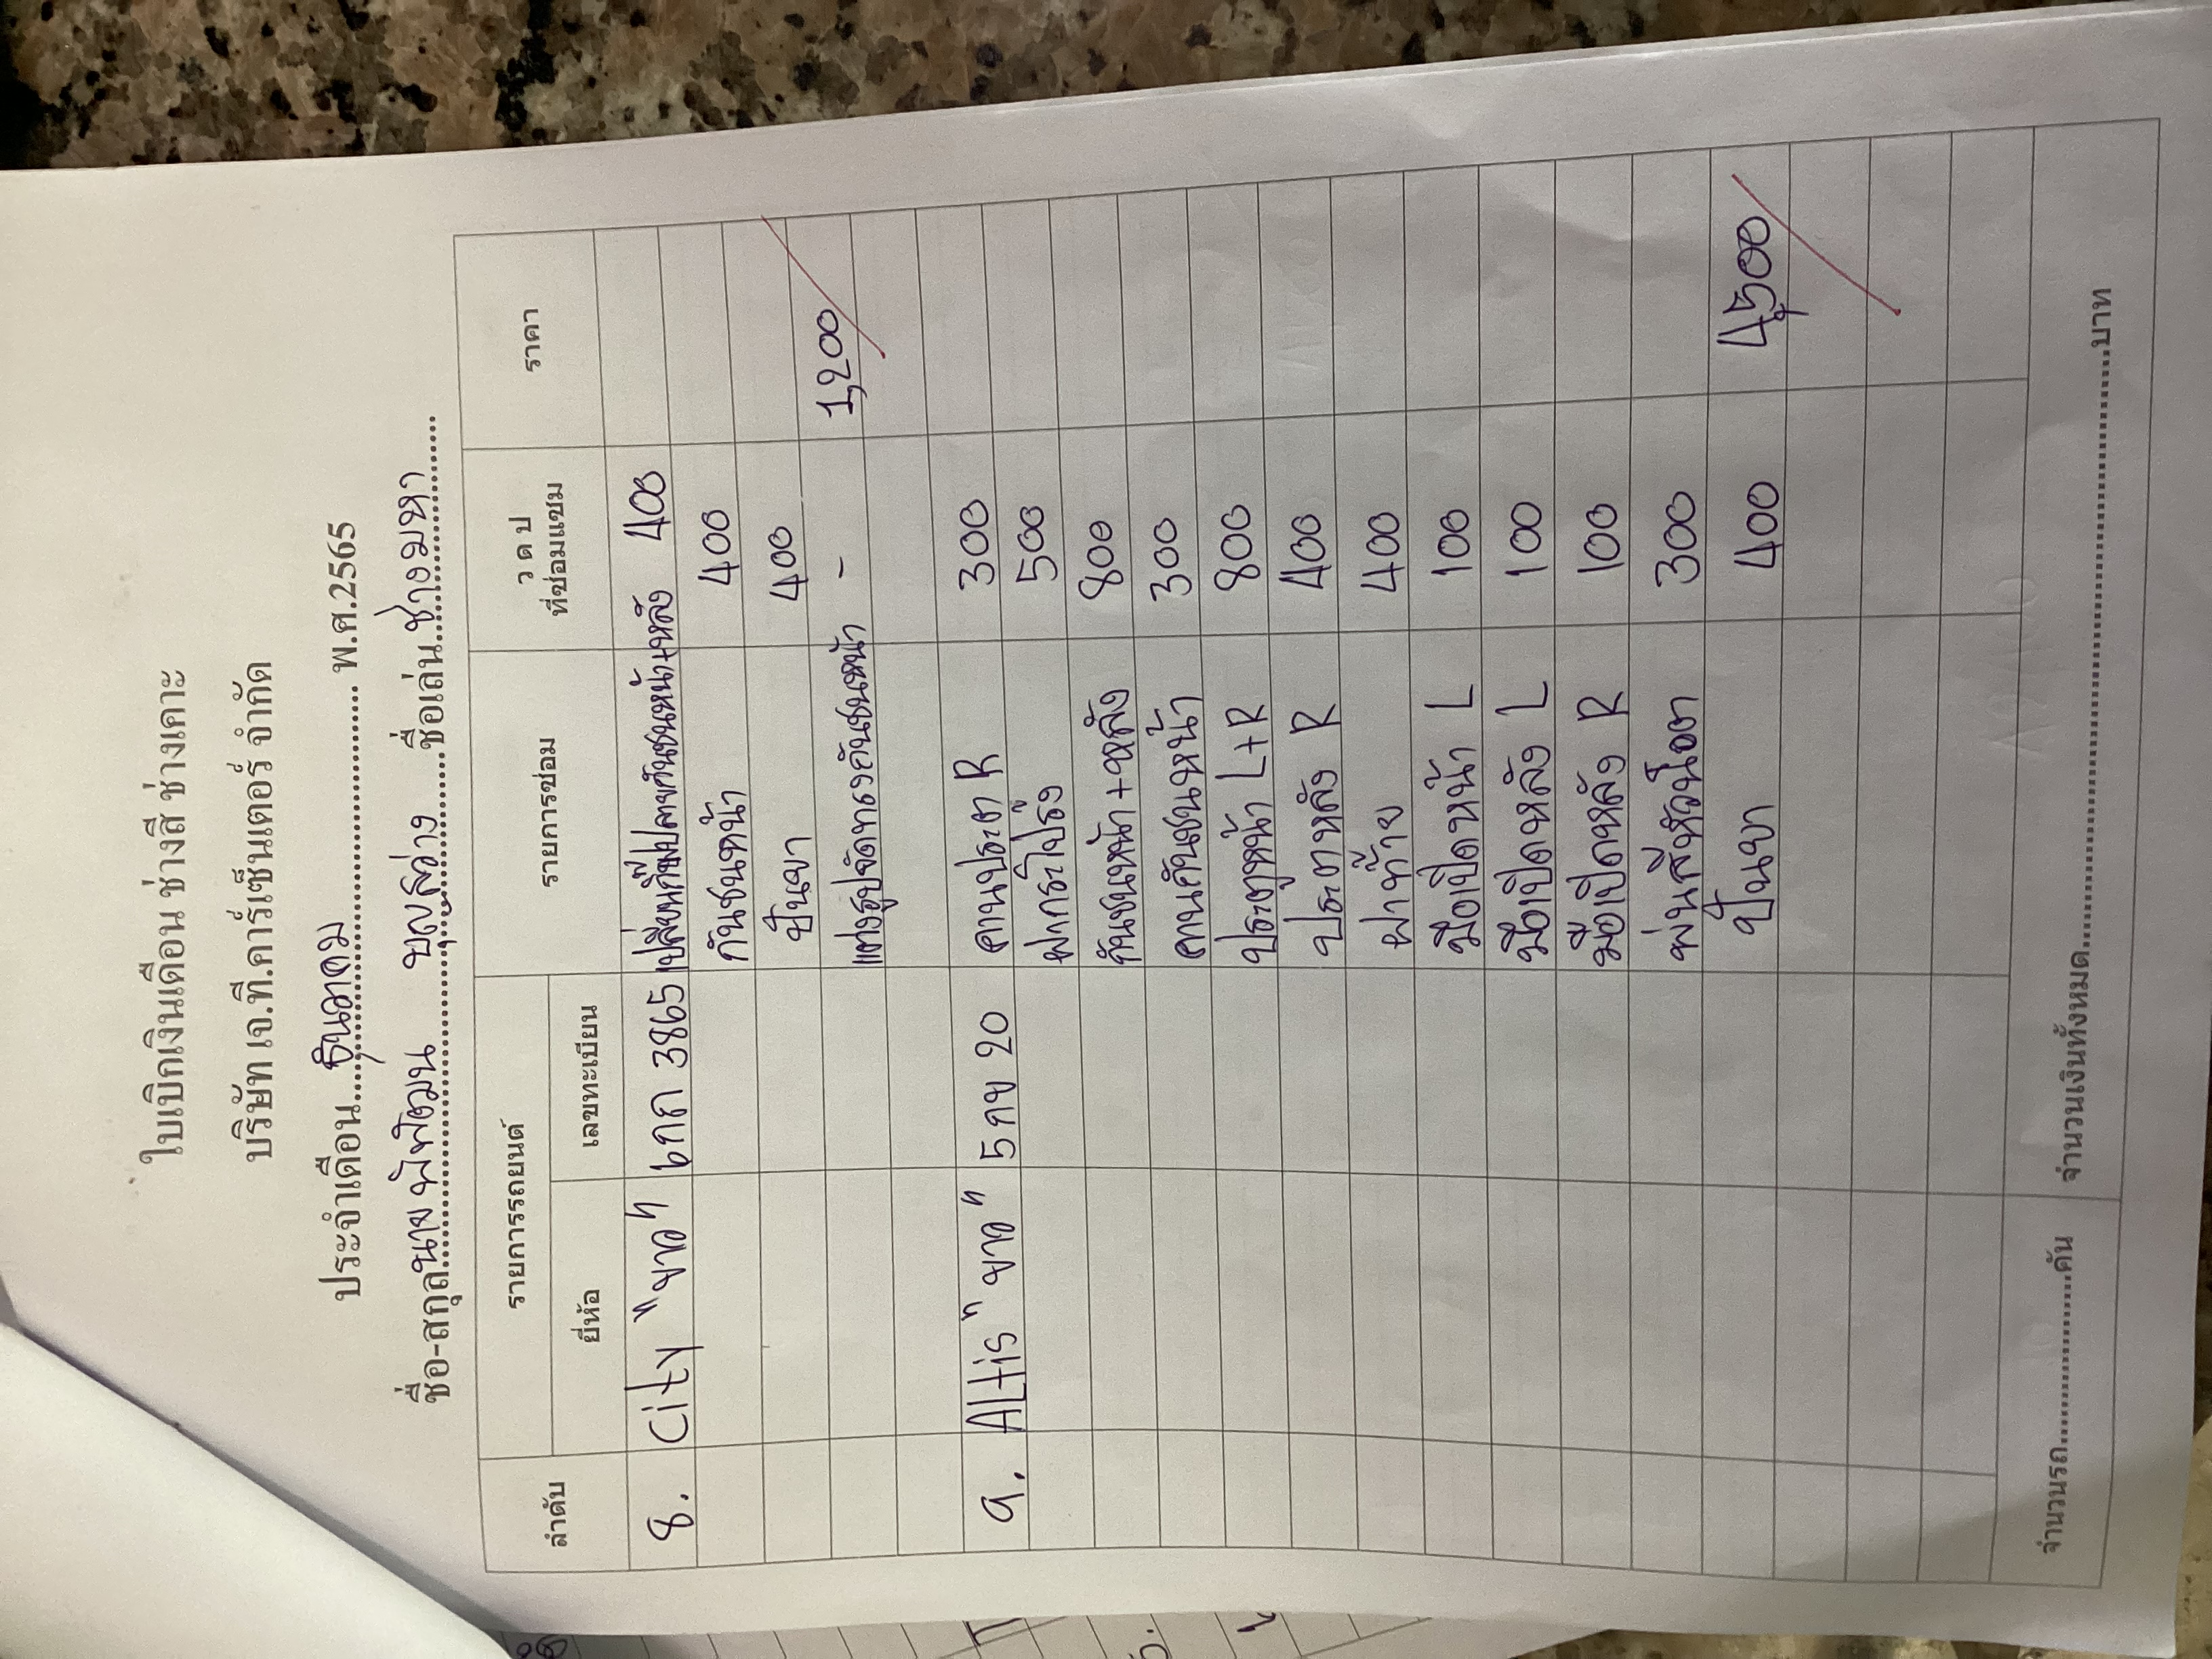 ใบเบิกเงินเดือน ช่างสี ช่างเคาะ
บริษัท เจ.ที.คาร์เซ็นเตอร์ จำกัด
ประจำเดือน....ธันวาคม.... พ.ศ.2565
ชื่อ-สกุล นาย พิพัฒน บุญสว่าง ชื่อเล่น ช่างมหา
ลำดับ รายการรถยนต์ รายการซ่อม ว ด ป ที่ซ่อมแซม ราคา
ยี่ห้อ เลขทะเบียน
8. City "ขาว" 6กก 3865 เปลี่ยนกิ๊ปปลายกันชนหน้า+หลัง 400
กันชนหน้า 400
ปั่นเงา 400
แต่งรูปจัดทรงกันชนหน้า - 1,200
9. ALtis "ขาว" 5กข 20 คานประตู R 300
ฝากระโปรง 500
กันชนหน้า+หลัง 800
คานกันชนหน้า 300
ประตูหน้า L+R 800
ประตูหลัง R 400
ฝาท้าย 400
มือเปิดหน้า L 100
มือเปิดหลัง L 100
มือเปิดหลัง R 100
พ่นสีหัวน็อต 300
ปั่นเงา 400 4,500
จำนวนรถ....................คัน จำนวนเงินทั้งหมด....................บาท